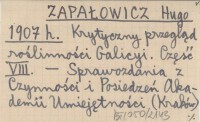 ZAPAŁOWICZ Hugo
1907 h. Krytyczny przegląd
roślinności Galicyi. Część
VIII. — Sprawozdania z
Czynności i Posiedzeń Aka-
demii Umiejętności (Kraków)